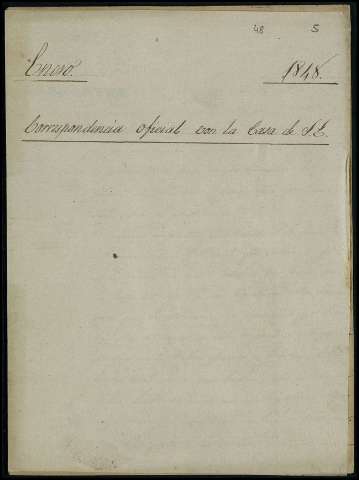 48 5
Enero. 1848.
Correspondencia oficial con la Casa de S. E.